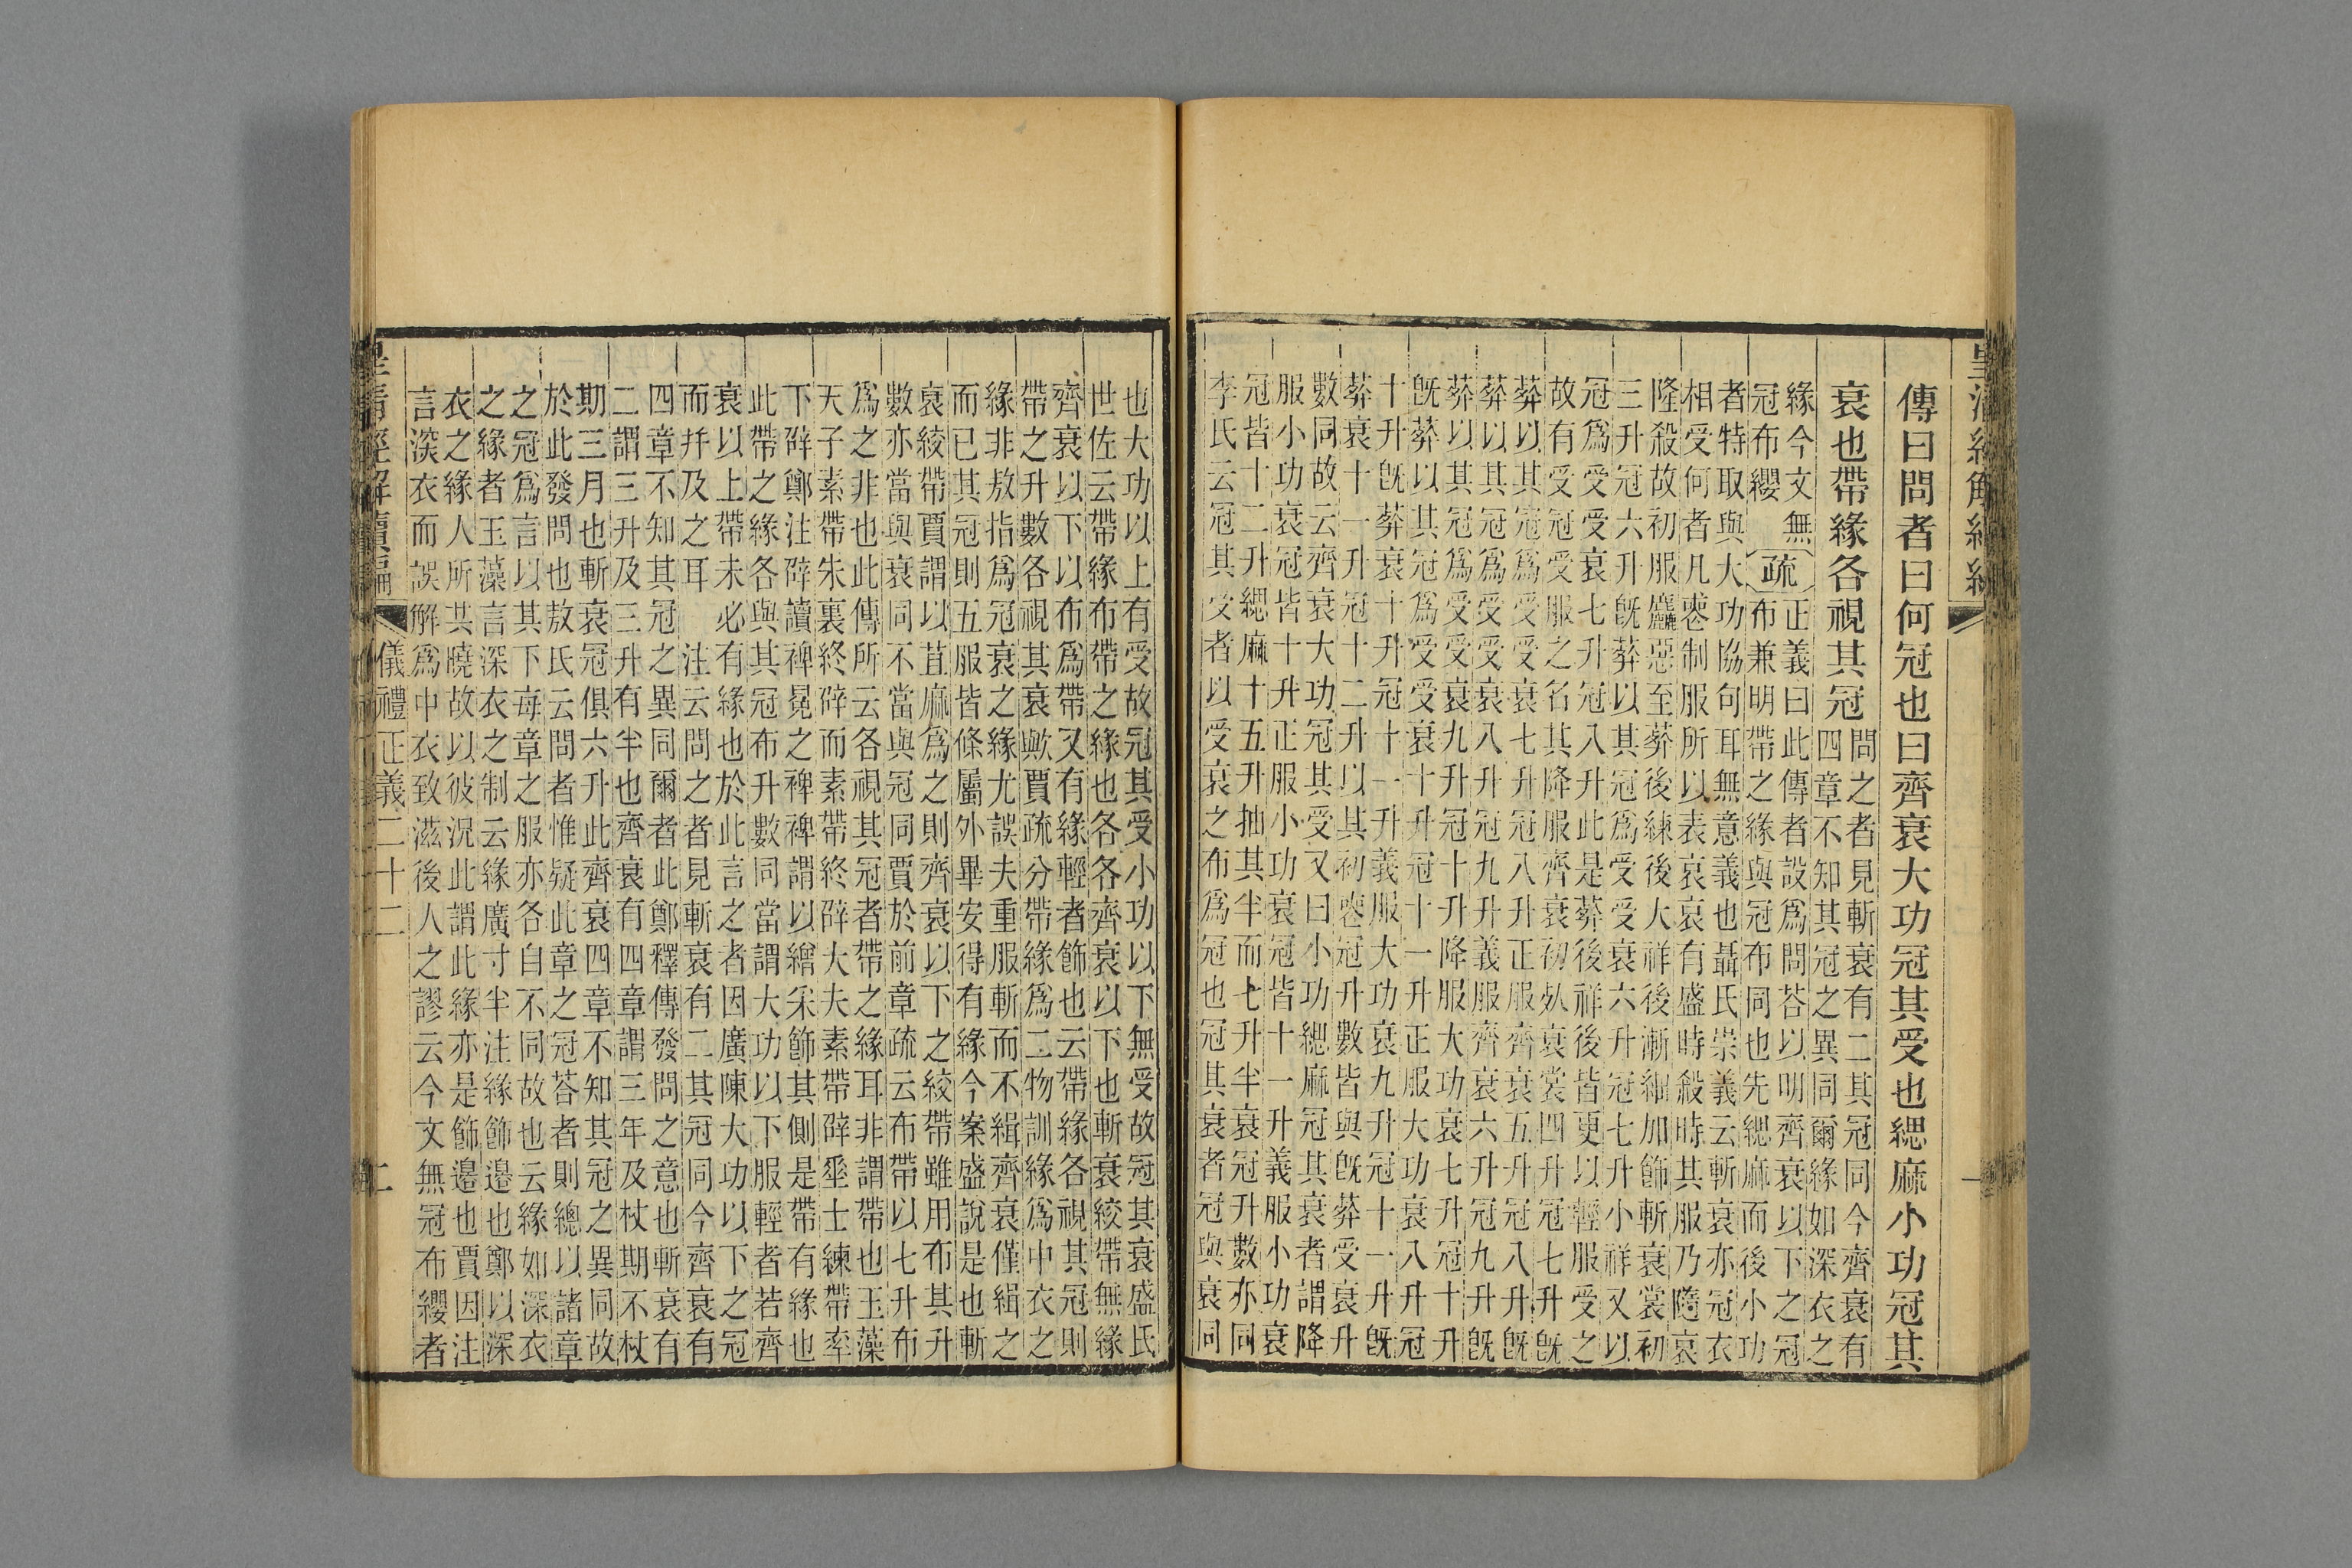 傳曰問者曰何冠也曰齊衰大功冠其受也緦麻小功冠其
衰也帶緣各視其冠
問之者見斬衰有二其冠同今齊衰有
四章不知其冠之異同爾緣如深衣之
緣今文無
冠布纓
疏
正義曰此傳者設爲問荅以明齊衰以下之冠
布兼明帶之緣與冠布同也先緦麻而後小功
者特取與大功協句耳無意義也聶氏崇義云斬衰亦冠衣
相受何者凡喪制服所以表哀哀有盛時殺時其服乃隨哀
隆殺故初服麤惡至葬後練後大祥後漸細加飾斬衰裳初
三升冠六升旣葬以其冠爲受受衰六升冠七升小祥又以
冠爲受受衰七升冠八升此是葬後祥後皆更以輕服受之
故有受冠受服之名其降服齊衰初衰裳四升冠七升旣
葬以其冠爲受受衰七升冠八升正服齊衰五升冠八升旣
葬以其冠爲受受衰八升冠九升義服齊衰六升冠九升旣
葬以其冠爲受受衰九升冠十升降服大功衰七升冠十升
旣葬以其冠爲受受衰十升冠十一升正服大功衰八升冠
十升旣葬衰十升冠十一升義服大功衰九升冠十一升旣
葬衰十一升冠十二升以其初喪冠升數皆與旣葬受衰升
數同故云齊衰大功冠其受又曰小功緦麻冠其衰者謂降
服小功衰冠皆十升正服小功衰冠皆十一升義服小功衰
冠皆十二升緦麻十五升抽其半而七升半衰冠升數亦同
李氏云冠其受者以受衰之布爲冠也冠其衰者冠與衰同
也大功以上有受故冠其受小功以下無受故冠其衰盛氏
世佐云帶緣布帶之緣也各各齊衰以下也斬衰絞帶無緣
齊衰以下以布爲帶又有緣輕者飾也云帶緣各視其冠則
帶之升數各視其衰歟賈疏分帶緣爲二物訓緣爲中衣之
緣非敖指爲冠衰之緣尤誤夫重服斬而不緝齊衰僅緝之
而已其冠則五服皆條屬外畢安得有緣今案盛說是也斬
衰絞帶賈謂以苴麻爲之則齊衰以下之絞帶雖用布其升
數亦當與衰同不當與冠同賈於前章疏云布帶以七升布
爲之非也此傳所云各視其冠者帶之緣耳非謂帶也玉藻
天子素帶朱裏終辟而素帶終辟大夫素帶辟垂士練帶率
下辟鄭注辟讀裨冕之裨裨謂以繒采飾其側是帶有緣也
此帶之緣各與其冠布升數同當謂大功以下服輕者若齊
衰以上帶未必有緣也於此言之者因廣陳大功以下之冠
而幷及之耳　注云問之者見斬衰有二其冠同今齊衰有
四章不知其冠之異同爾者此鄭釋傳發問之意也斬衰有
二謂三升及三升有半也齊衰有四章謂三年及杖期不杖
期三月也斬衰冠俱六升此齊衰四章不知其冠之異同故
於此發問也敖氏云問者惟疑此章之冠荅者則總以諸章
之冠爲言以其下每章之服亦各自不同故也云緣如深衣
之緣者玉藻言深衣之制云緣廣寸半注緣飾邊也鄭以深
衣之緣人所共曉故以彼況此謂此緣亦是飾邊也賈因注
言深衣而誤解爲中衣致滋後人之謬云今文無冠布纓者
皇清經解續編　儀禮正義二十二　二